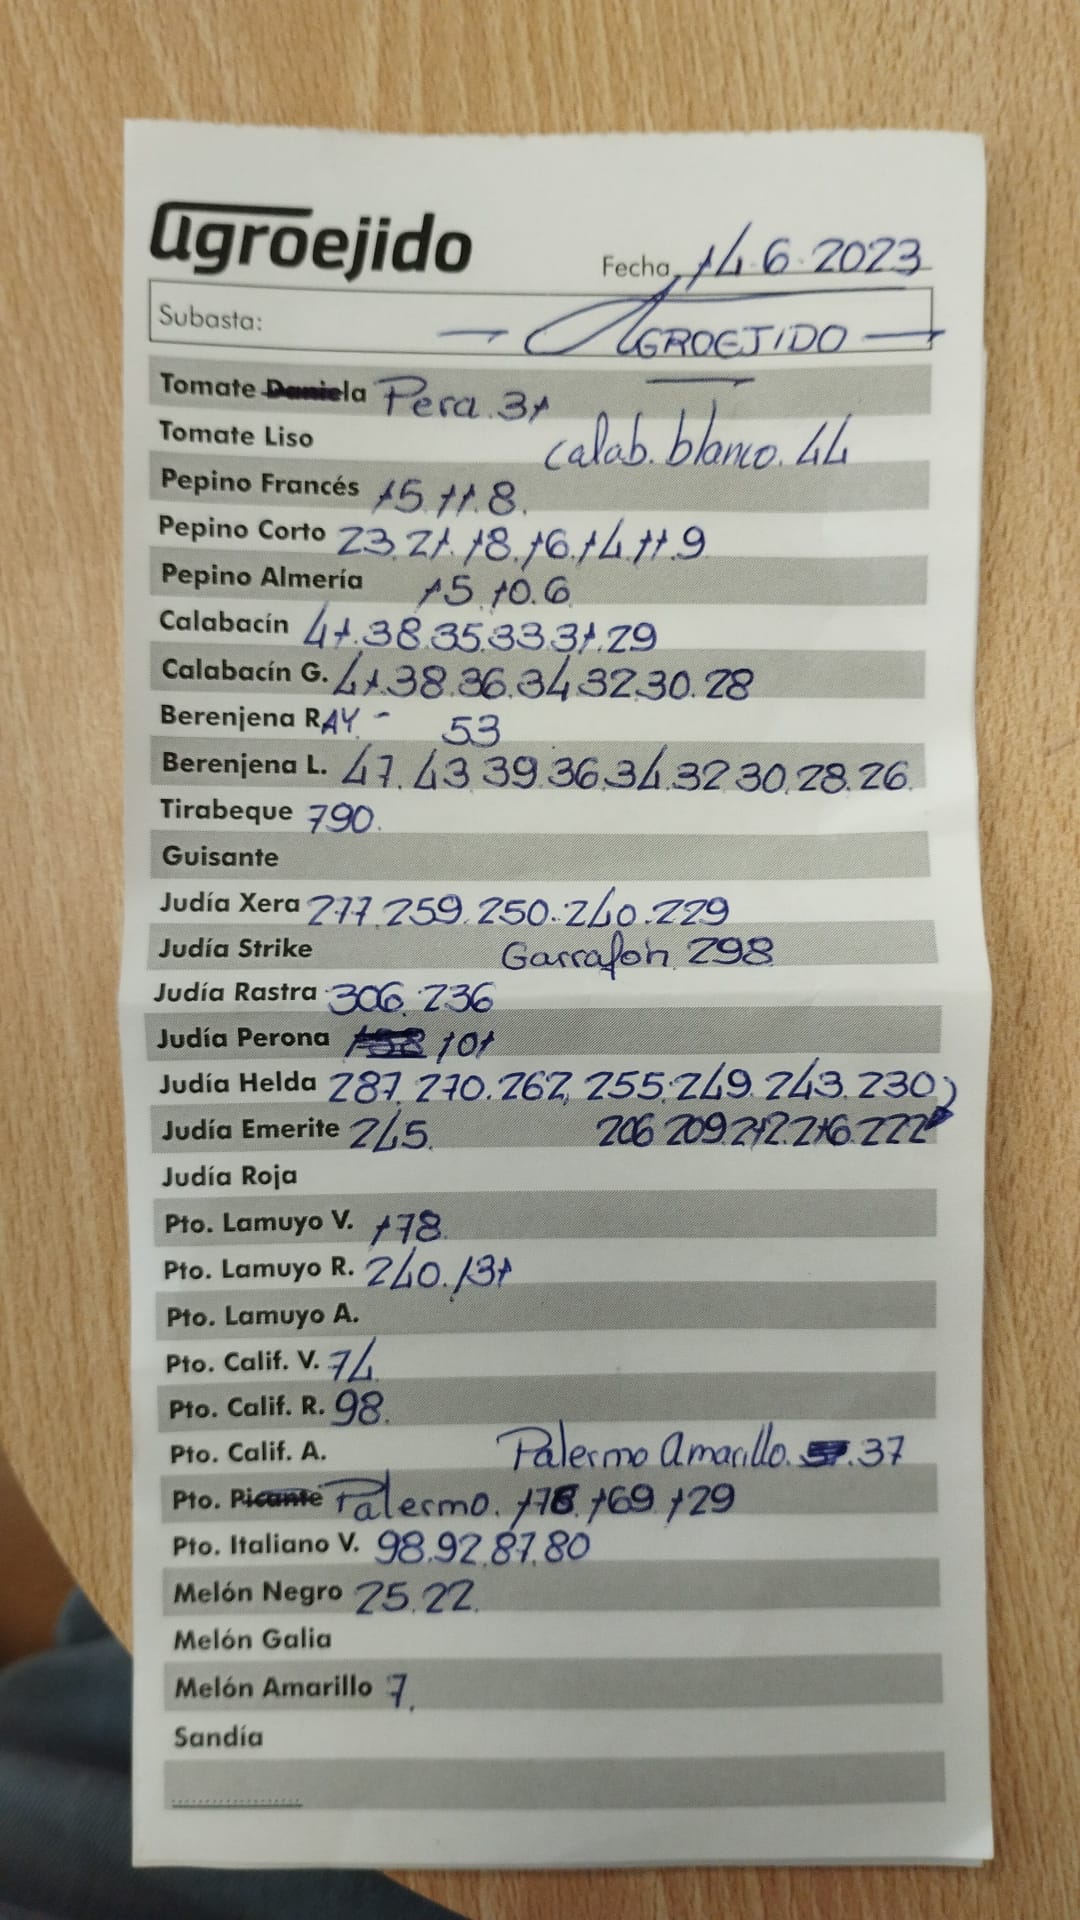 agroejido
Fecha 14.6.2023
Subasta: — AGROEJIDO —
Tomate Daniela Pera. 31
Tomate Liso calab. blanco. 44
Pepino Francés 15.11.8.
Pepino Corto 23.21.18.16.14.11.9
Pepino Almería 15.10.6
Calabacín 41.38.35.33.31.29
Calabacín G. 41.38.36.34.32.30.28
Berenjena RAY - 53
Berenjena L. 47.43.39.36.34.32.30.28.26.
Tirabeque 790.
Guisante
Judía Xera 277.259.250.240.229
Judía Strike Garrafón 298
Judía Rastra 306.236
Judía Perona 101
Judía Helda 287.270.262,255.249.243.230
Judía Emerite 245. 206 209.212.216.222
Judía Roja
Pto. Lamuyo V. 178
Pto. Lamuyo R. 240.131
Pto. Lamuyo A.
Pto. Calif. V. 74
Pto. Calif. R. 98.
Pto. Calif. A. Palermo Amarillo. .37
Pto. Picante Palermo. 178.169.129
Pto. Italiano V. 98.92.87.80
Melón Negro 25.22.
Melón Galia
Melón Amarillo 7.
Sandía